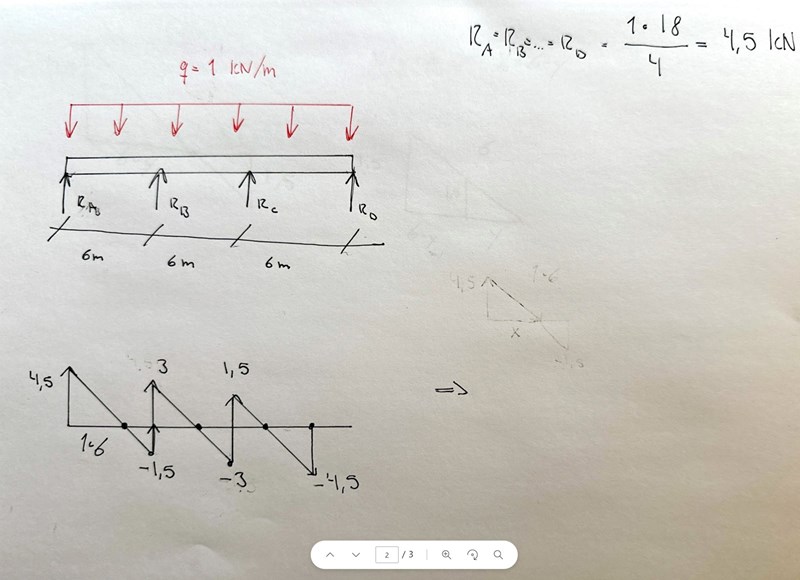 R_A = R_B = ... = R_D = 1 · 18 / 4 = 4,5 kN
q = 1 kN/m
R_A R_B R_C R_D
6m 6m 6m
4,5 1·6
x
4,5 3 1,5
1·6
-1,5 -3 -4,5
⇒
2 / 3